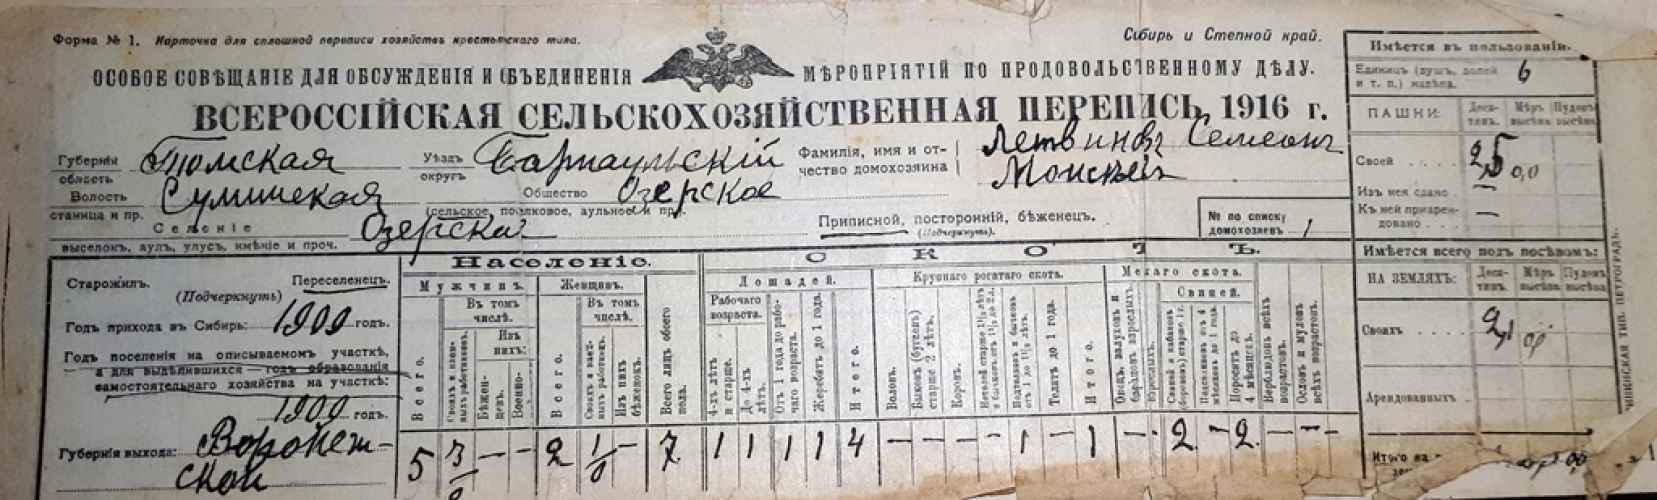 Форма № 1. Карточка для сплошной переписи хозяйствъ крестьянскаго типа.
Сибирь и Степной край.
ОСОБОЕ СОВѢЩАНІЕ ДЛЯ ОБСУЖДЕНІЯ И ОБЪЕДИНЕНІЯ МѢРОПРІЯТІЙ ПО ПРОДОВОЛЬСТВЕННОМУ ДѢЛУ.
ВСЕРОССІЙСКАЯ СЕЛЬСКОХОЗЯЙСТВЕННАЯ ПЕРЕПИСЬ 1916 г.
Губернія область Томская Уѣздъ округъ Барнаульскій Фамилія, имя и отчество домохозяина Летвиновъ Семеонъ
Моисѣев
Волость станица и пр. Сумінская Общество Озерское
(сельское, поселковое, аульное и пр.)
Селеніе Озерская
выселокъ, аулъ, улусъ, имѣніе и проч.
Приписной, посторонній, бѣженецъ.
(Подчеркнуть).
№ по списку домохозяевъ 1
Старожилъ. Переселенецъ.
(Подчеркнуть)
Годъ прихода въ Сибирь: 1909 годъ.
Годъ поселенія на описываемомъ участкѣ,
а для выдѣлившихся — годъ образованія
самостоятельнаго хозяйства на участкѣ:
1909 годъ.
Губернія выхода: Воронеж-
ской
Населеніе.
Мужчинъ. Женщинъ.
Всего.
Въ томъ числѣ.
Своихъ и наемныхъ работниковъ.
Изъ нихъ:
Бѣженцевъ.
Военно-
Всего.
Въ томъ числѣ.
Изъ нихъ бѣженокъ.
Всего лицъ обоего пола.
5 3 — — 2 1 — 7
СКОТЪ.
Лошадей.
Рабочаго возраста.
4-хъ лѣтъ и старше.
До 4-хъ лѣтъ.
Отъ 1 года до рабочаго возраста.
Жеребятъ до 1 года.
Итого.
Крупнаго рогатаго скота.
Воловъ.
Быковъ (бугаевъ) старше 2 лѣтъ.
Коровъ.
Нетелей старше 1½ лѣтъ и бычковъ отъ 1½ до 2 л.
Подтелковъ и бычковъ отъ 1 до 1½ лѣтъ.
Телятъ до 1 года.
Итого.
Мелкаго скота.
Овецъ, валуховъ и барановъ взрослыхъ.
Свиней.
Поросятъ до 4 мѣсяцевъ.
Верблюдовъ всѣхъ возрастовъ.
Ословъ и муловъ всѣхъ возрастовъ.
1 1 1 1 4 — — — — 1 — 1 — 2 — 2 — —
Имѣется въ пользованіи.
Единицъ (душъ, долей и т. п.) надѣла. 6
ПАШНИ: Десятинъ. Мѣръ высѣва Пудовъ высѣва
Своей
Изъ нея сдано —
Къ ней приарендовано —
Имѣется всего подъ посѣвомъ:
НА ЗЕМЛЯХЪ: Десятинъ. Мѣръ высѣва Пудовъ высѣва
Своихъ
Арендованныхъ
Итого на